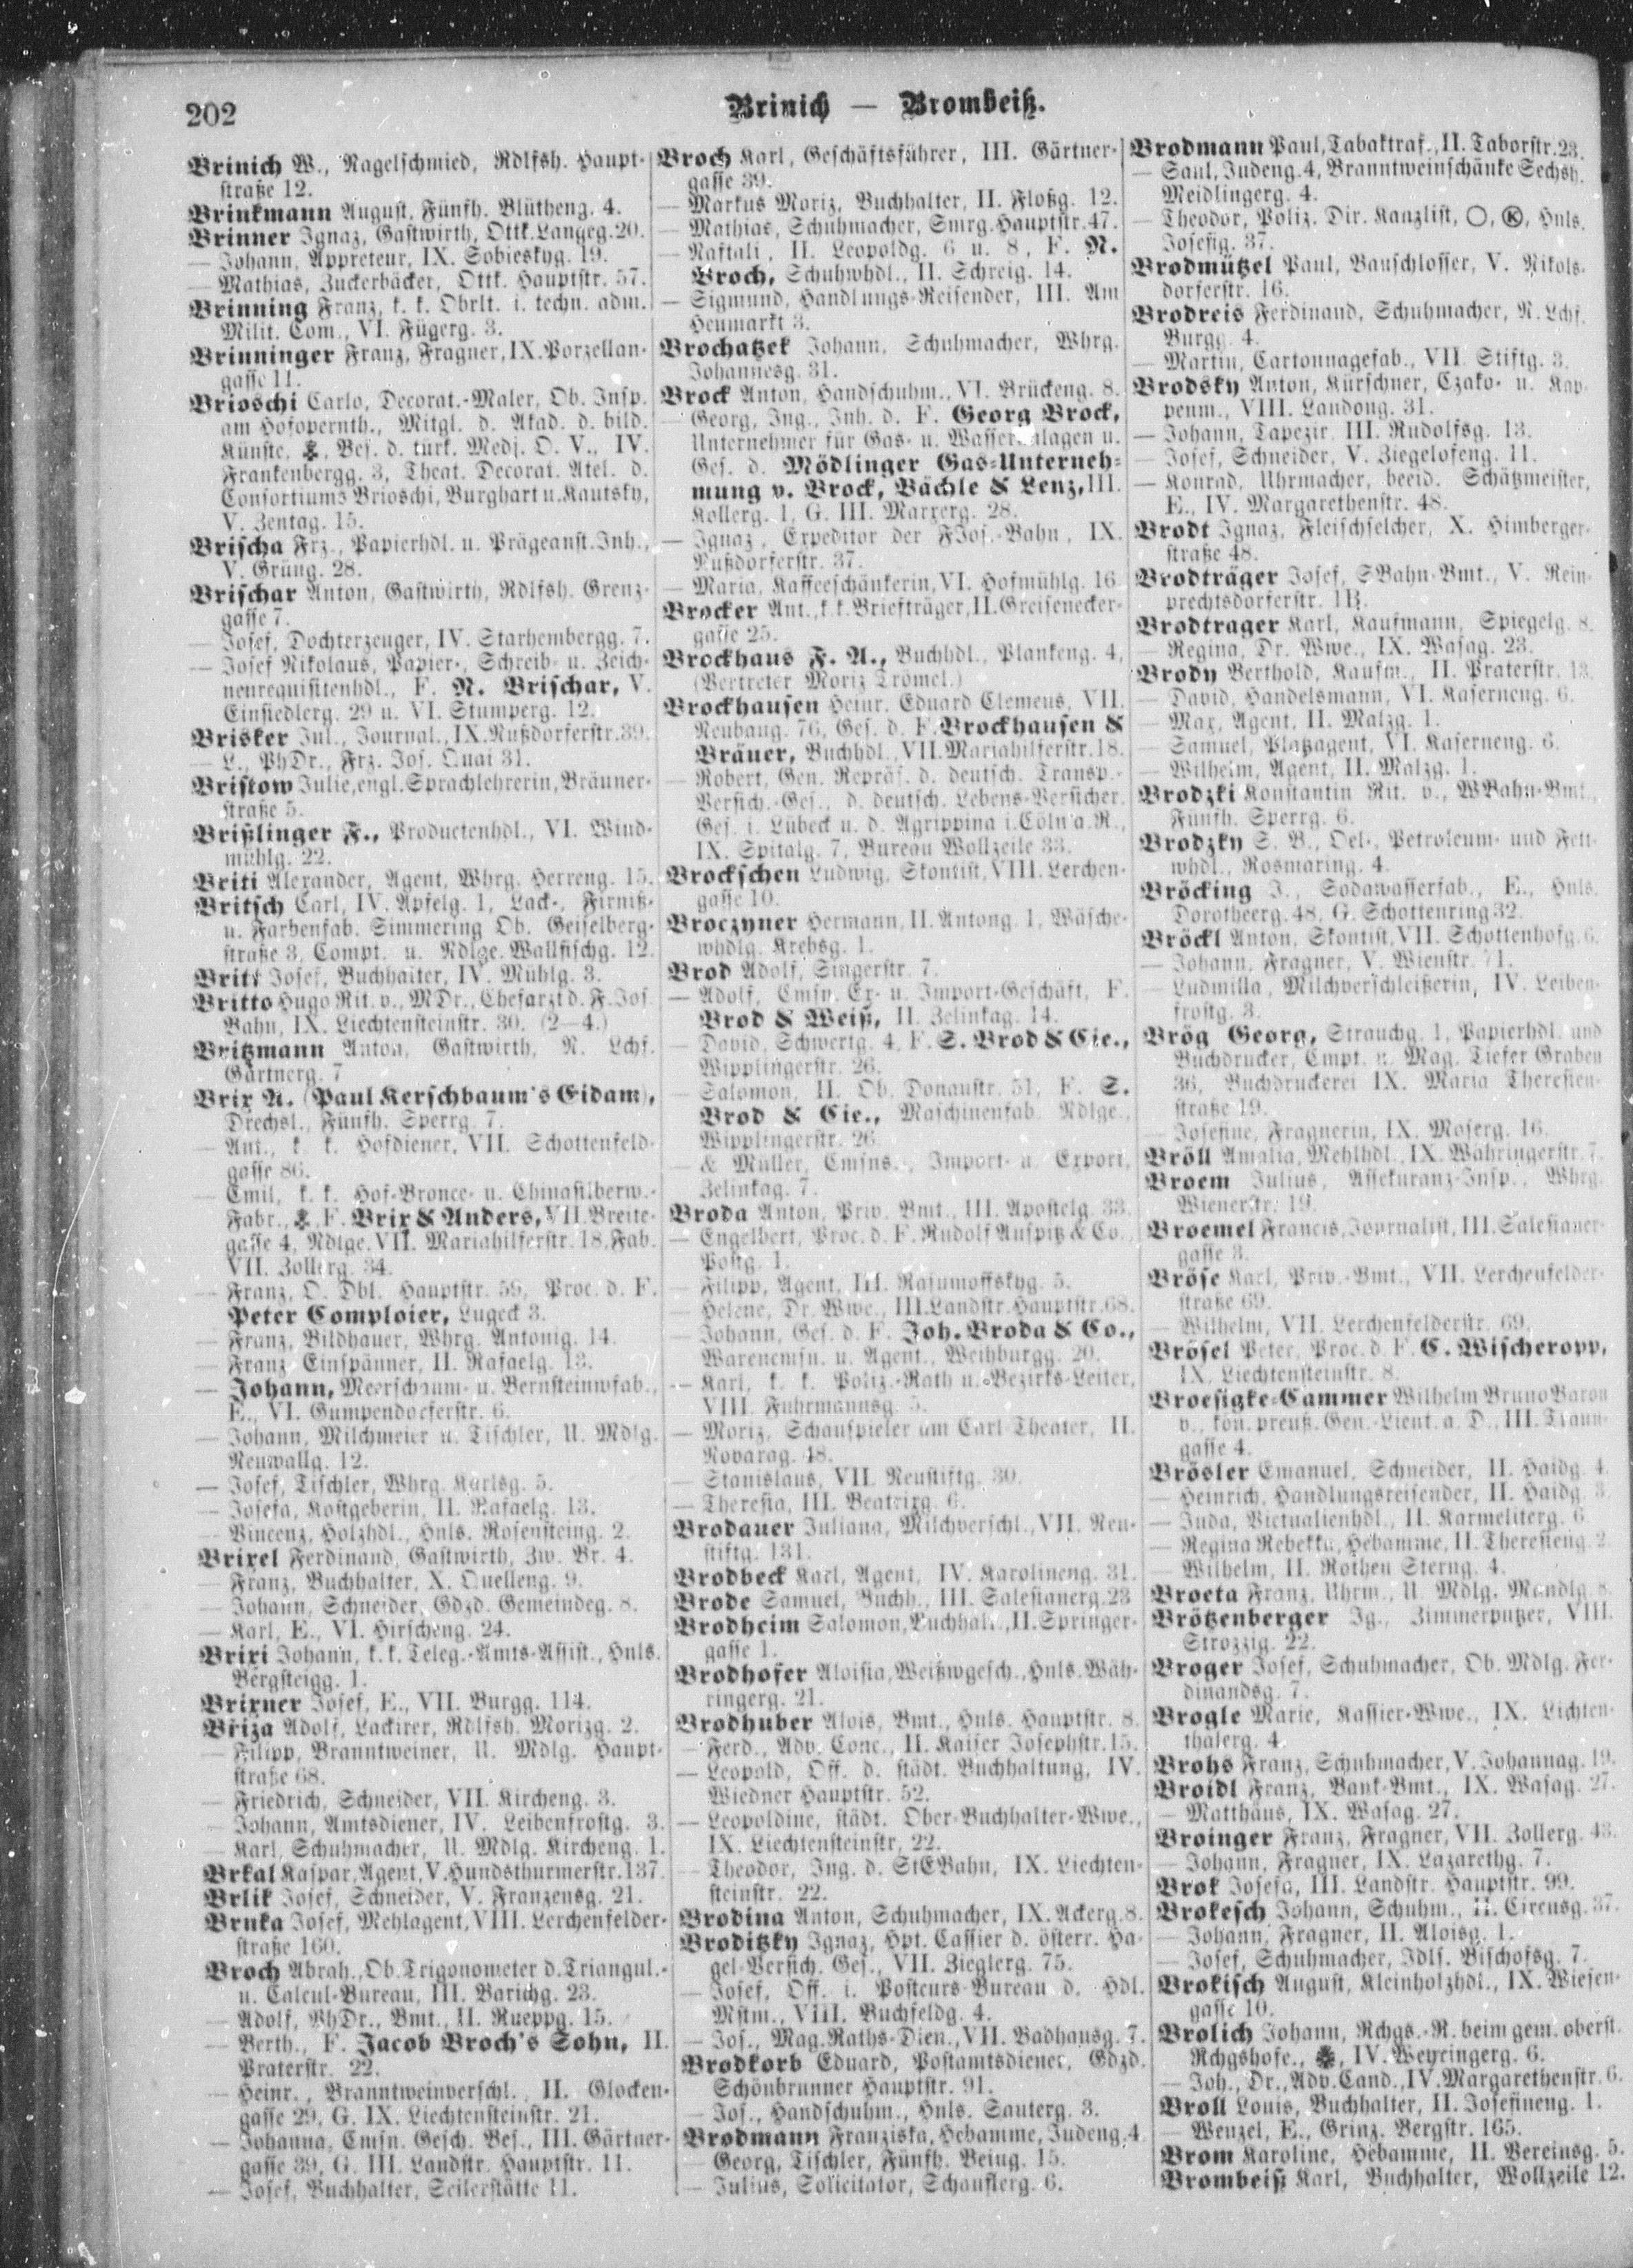 202
Brinich — Brombeiß.
Brinich W., Nagelschmied, Rdlfsh. Haupt-
straße 12.
Brinkmann August, Fünfh. Blütheng. 4.
Brinner Ignaz, Gastwirth, Ottk. Langeg. 20.
— Johann, Appreteur, IX. Sobieskyg. 19.
— Mathias, Zuckerbäcker, Ottk. Hauptstr. 57.
Brinning Franz, k. k. Obrlt. i. techn. adm.
Milit. Com., VI. Fügerg. 3.
Brinninger Franz, Fragner, IX. Porzellan-
gasse 11.
Brioschi Carlo, Decorat.-Maler, Ob. Insp.
am Hofopernth., Mitgl. d. Akad. d. bild.
Künste, Bes. d. türk. Medj. O. V., IV.
Frankenbergg. 3, Theat. Decorat. Atel. d.
Consortiums Brioschi, Burghart u. Kautsky,
V. Zentag. 15.
Brischa Frz., Papierhdl. u. Prägeanst. Inh.,
V. Grüng. 28.
Brischar Anton, Gastwirth, Rdlfsh. Grenz-
gasse 7.
— Josef, Dochterzeuger, IV. Starhembergg. 7.
— Josef Nikolaus, Papier-, Schreib- u. Zeich-
nenrequisitenhdl., F. N. Brischar, V.
Einsiedlerg. 29 u. VI. Stumperg. 12.
Brisker Jul., Journal., IX. Nußdorferstr. 39.
— L., PhDr., Frz. Jos. Quai 31.
Bristow Julie, engl. Sprachlehrerin, Bräuner-
straße 5.
Brißlinger F., Productenhdl., VI. Wind-
mühlg. 22.
Briti Alexander, Agent, Whrg. Herreng. 15.
Britsch Carl, IV. Apfelg. 1, Lack-, Firniß-
u. Farbenfab. Simmering Ob. Geiselberg-
straße 3, Compt. u. Ndlge. Wallfischg. 12.
Britt Josef, Buchhalter, IV. Mühlg. 3.
Britto Hugo Rit. v., MDr., Chefarzt d. F. Jos.
Bahn, IX. Liechtensteinstr. 30. (2—4.)
Britzmann Anton, Gastwirth, N. Lchf.
Gärtnerg. 7
Brix A. (Paul Kerschbaum's Eidam),
Drechsl., Fünfh. Sperrg. 7.
— Ant., k. k. Hofdiener, VII. Schottenfeld-
gasse 86.
— Emil, k. k. Hof-Bronce- u. Chinasilberw.-
Fabr., F. Brix & Anders, VII. Breite-
gasse 4, Ndlge. VII. Mariahilferstr. 18, Fab.
VII. Zollerg. 34.
— Franz, O. Dbl. Hauptstr. 59, Proc. d. F.
Peter Comploier, Lugeck 3.
— Franz, Bildhauer, Whrg. Antonig. 14.
— Franz Einspänner, II. Rafaelg. 13.
— Johann, Meerschaum- u. Bernsteinwfab.,
E., VI. Gumpendorferstr. 6.
— Johann, Milchmeier u. Tischler, U. Mdlg.
Neuwallg. 12.
— Josef, Tischler, Whrg. Karlsg. 5.
— Josefa, Kostgeberin, II. Rafaelg. 13.
— Vincenz, Holzhdl., Hnls. Rosensteing. 2.
Brixel Ferdinand, Gastwirth, Zw. Br. 4.
— Franz, Buchhalter, X. Quelleng. 9.
— Johann, Schneider, Gdzd. Gemeindeg. 8.
— Karl, E., VI. Hirscheng. 24.
Brixi Johann, k. k. Teleg.-Amts-Assist., Hnls.
Bergsteigg. 1.
Brixner Josef, E., VII. Burgg. 114.
Briza Adolf, Lackirer, Rdlfsh. Morizg. 2.
— Filipp, Branntweiner, U. Mdlg. Haupt-
straße 68.
— Friedrich, Schneider, VII. Kircheng. 3.
— Johann, Amtsdiener, IV. Leibenfrostg. 3.
— Karl, Schuhmacher, U. Mdlg. Kircheng. 1.
Brkal Kaspar, Agent, V. Hundsthurmerstr. 137.
Brlik Josef, Schneider, V. Franzensg. 21.
Brnka Josef, Mehlagent, VIII. Lerchenfelder-
straße 160.
Broch Abrah., Ob. Trigonometer d. Triangul.-
u. Calcul-Bureau, III. Barichg. 23.
— Adolf, PhDr., Bmt., II. Rueppg. 15.
— Berth., F. Jacob Broch's Sohn, II.
Praterstr. 22.
— Heinr., Branntweinverschl., II. Glocken-
gasse 29, G. IX. Liechtensteinstr. 21.
— Johanna, Cmsn. Gesch. Bes., III. Gärtner-
gasse 39, G. III. Landstr. Hauptstr. 11.
— Josef, Buchhalter, Seilerstätte 11.
Broch Karl, Geschäftsführer, III. Gärtner-
gasse 39.
— Markus Moriz, Buchhalter, II. Floßg. 12.
— Mathias, Schuhmacher, Smrg. Hauptstr. 47.
— Naftali, II. Leopoldg. 6 u. 8, F. N.
Broch, Schuhwhdl., II. Schreig. 14.
— Sigmund, Handlungs-Reisender, III. Am
Heumarkt 3.
Brochatzek Johann, Schuhmacher, Whrg.
Johannesg. 31.
Brock Anton, Handschuhm., VI. Brückeng. 8.
— Georg, Ing., Inh. d. F. Georg Brock,
Unternehmer für Gas- u. Wasseranlagen u.
Ges. d. Mödlinger Gas-Unterneh-
mung v. Brock, Bächle & Lenz, III.
Kollerg. 1, G. III. Marxerg. 28.
— Ignaz, Expeditor der FJos.-Bahn, IX.
Nußdorferstr. 37.
— Maria, Kaffeeschänkerin, VI. Hofmühlg. 16.
Brocker Ant., k. k. Briefträger, II. Greisenecker-
gasse 25.
Brockhaus F. A., Buchhdl., Plankeng. 4,
(Vertreter Moriz Trömel.)
Brockhausen Heinr. Eduard Clemens, VII.
Neubaug. 76, Ges. d. F. Brockhausen &
Bräuer, Buchhdl., VII. Mariahilferstr. 18.
— Robert, Gen. Repräs. d. deutsch. Transp.-
Versich.-Ges., d. deutsch. Lebens-Versicher.
Ges. i. Lübeck u. d. Agrippina i. Cöln a. R.,
IX. Spitalg. 7, Bureau Wollzeile 33.
Brockschen Ludwig, Skontist, VIII. Lerchen-
gasse 10.
Broczyner Hermann, II. Antong. 1, Wäsche-
whdlg. Krebsg. 1.
Brod Adolf, Singerstr. 7.
— Adolf, Cmsn. Ex- u. Import-Geschäft, F.
Brod & Weiß, II. Zelinkag. 14.
— David, Schwertg. 4, F. S. Brod & Cie.,
Wipplingerstr. 26.
— Salomon, II. Ob. Donaustr. 51, F. S.
Brod & Cie., Maschinenfab. Ndlge.,
Wipplingerstr. 26.
— & Müller, Cmsns., Import- u. Export,
Zelinkag. 7.
Broda Anton, Priv. Bmt., III. Apostelg. 33.
— Engelbert, Proc. d. F. Rudolf Auspitz & Co.,
Postg. 1.
— Filipp, Agent, III. Rasumoffskyg. 5.
— Helene, Dr. Wwe., III. Landstr. Hauptstr. 68.
— Johann, Ges. d. F. Joh. Broda & Co.,
Warencmsn. u. Agent., Weihburgg. 20.
— Karl, k. k. Poliz.-Rath u. Bezirks-Leiter,
VIII. Fuhrmannsg. 5.
— Moriz, Schauspieler am Carl-Theater, II.
Novarag. 48.
— Stanislaus, VII. Neustiftg. 30.
— Theresia, III. Beatrixg. 6.
Brodauer Juliana, Milchverschl., VII. Neu-
stiftg. 131.
Brodbeck Karl, Agent, IV. Karolineng. 31.
Brode Samuel, Buchh., III. Salesianerg. 23
Brodheim Salomon, Buchhalt., II. Springer-
gasse 1.
Brodhofer Aloisia, Weißwgesch., Hnls. Wäh-
ringerg. 21.
Brodhuber Alois, Bmt., Hnls. Hauptstr. 8.
— Ferd., Adv. Conc., II. Kaiser Josephstr. 15.
— Leopold, Off. d. städt. Buchhaltung, IV.
Wiedner Hauptstr. 52.
— Leopoldine, städt. Ober-Buchhalter-Wwe.,
IX. Liechtensteinstr. 22.
— Theodor, Ing. d. StEBahn, IX. Liechten-
steinstr. 22.
Brodina Anton, Schuhmacher, IX. Ackerg. 8.
Broditzky Ignaz, Hpt. Cassier d. österr. Ha-
gel-Versich. Ges., VII. Zieglerg. 75.
— Josef, Off. i. Posteurs-Bureau d. Hdl.
Mstm., VIII. Buchfeldg. 4.
— Jos., Mag. Raths-Dien., VII. Badhausg. 7.
Brodkorb Eduard, Postamtsdiener, Gdzd.
Schönbrunner Hauptstr. 91.
— Jos., Handschuhm., Hnls. Sauterg. 3.
Brodmann Franziska, Hebamme, Judeng. 4
— Georg, Tischler, Fünfh. Being. 15.
— Julius, Solicitator, Schauflerg. 6.
Brodmann Paul, Tabaktraf., II. Taborstr. 23.
— Saul, Judeng. 4, Branntweinschänke Sechsh.
Meidlingerg. 4.
— Theodor, Poliz. Dir. Kanzlist, ○, Ⓚ, Hnls.
Josefig. 37.
Brodmützel Paul, Bauschlosser, V. Nikols-
dorferstr. 16.
Brodreis Ferdinand, Schuhmacher, N. Lchf.
Burgg. 4.
— Martin, Cartonnagefab., VII. Stiftg. 3.
Brodsky Anton, Kürschner, Czako- u. Kap-
penm., VIII. Landong. 31.
— Johann, Tapezir, III. Rudolfsg. 13.
— Josef, Schneider, V. Ziegelofeng. 11.
— Konrad, Uhrmacher, beeid. Schätzmeister,
E., IV. Margarethenstr. 48.
Brodt Ignaz, Fleischselcher, X. Himberger-
straße 48.
Brodträger Josef, SBahn-Bmt., V. Rein-
prechtsdorferstr. 1B.
Brodtrager Karl, Kaufmann, Spiegelg. 8.
— Regina, Dr. Wwe., IX. Wasag. 23.
Brody Berthold, Kaufm., II. Praterstr. 13.
— David, Handelsmann, VI. Kaserneng. 6.
— Max, Agent, II. Malzg. 1.
— Samuel, Platzagent, VI. Kaserneng. 6.
— Wilhelm, Agent, II. Malzg. 1.
Brodzki Konstantin Rit. v., WBahn-Bmt.,
Fünfh. Sperrg. 6.
Brodzky S. B., Oel-, Petroleum- und Fett-
whdl., Rosmaring. 4.
Bröcking J., Sodawasserfab., E., Hnls.
Dorotheerg. 48, G. Schottenring 32.
Bröckl Anton, Skontist, VII. Schottenhofg. 6.
— Johann, Fragner, V. Wienstr. 71.
— Ludmilla, Milchverschleißerin, IV. Leiben-
frostg. 3.
Brög Georg, Strauchg. 1, Papierhdl. und
Buchdrucker, Cmpt. u. Mag. Tiefer Graben
36, Buchdruckerei IX. Maria Theresien-
straße 19.
— Josefine, Fragnerin, IX. Moserg. 16.
Bröll Amalia, Mehlhdl., IX. Währingerstr. 7.
Broem Julius, Assekuranz-Insp., Whrg.
Wienerstr. 19.
Broemel Francis, Journalist, III. Salesianer-
gasse 3.
Bröse Karl, Priv.-Bmt., VII. Lerchenfelder-
straße 69.
— Wilhelm, VII. Lerchenfelderstr. 69.
Brösel Peter, Proc. d. F. C. Wischeropp,
IX. Liechtensteinstr. 8.
Broesigke-Cammer Wilhelm Bruno Baron
v., kön. preuß. Gen.-Lieut. a. D., III. Traun-
gasse 4.
Brösler Emanuel, Schneider, II. Haidg. 4.
— Heinrich, Handlungsreisender, II. Haidg. 3.
— Juda, Victualienhdl., II. Karmeliterg. 6
— Regina Rebekka, Hebamme, II. Theresieng. 2.
— Wilhelm, II. Rothen Sterng. 4.
Broeta Franz, Uhrm., U. Mdlg. Mandlg. 8.
Brötzenberger Ig., Zimmerputzer, VIII.
Strozzig. 22.
Broger Josef, Schuhmacher, Ob. Mdlg. Fer-
dinandsg. 7.
Brogle Marie, Kassier-Wwe., IX. Lichten-
thalerg. 4.
Brohs Franz, Schuhmacher, V. Johannag. 19.
Broidl Franz, Bank-Bmt., IX. Wasag. 27.
— Matthäus, IX. Wasag. 27.
Broinger Franz, Fragner, VII. Zollerg. 43.
— Johann, Fragner, IX. Lazarethg. 7.
Brok Josefa, III. Landstr. Hauptstr. 99.
Brokesch Johann, Schuhm., II. Circusg. 37.
— Johann, Fragner, II. Aloisg. 1.
— Josef, Schuhmacher, Jdls. Bischofsg. 7.
Brokisch August, Kleinholzhdl., IX. Wiesen-
gasse 10.
Brolich Johann, Rchgs.-R. beim gem. oberst.
Rchgshofe., IV. Weyringerg. 6.
— Joh., Dr., Adv. Cand., IV. Margarethenstr. 6.
Broll Louis, Buchhalter, II. Josefineng. 1.
— Wenzel, E., Grinz. Bergstr. 165.
Brom Karoline, Hebamme, II. Vereinsg. 5.
Brombeiß Karl, Buchhalter, Wollzeile 12.